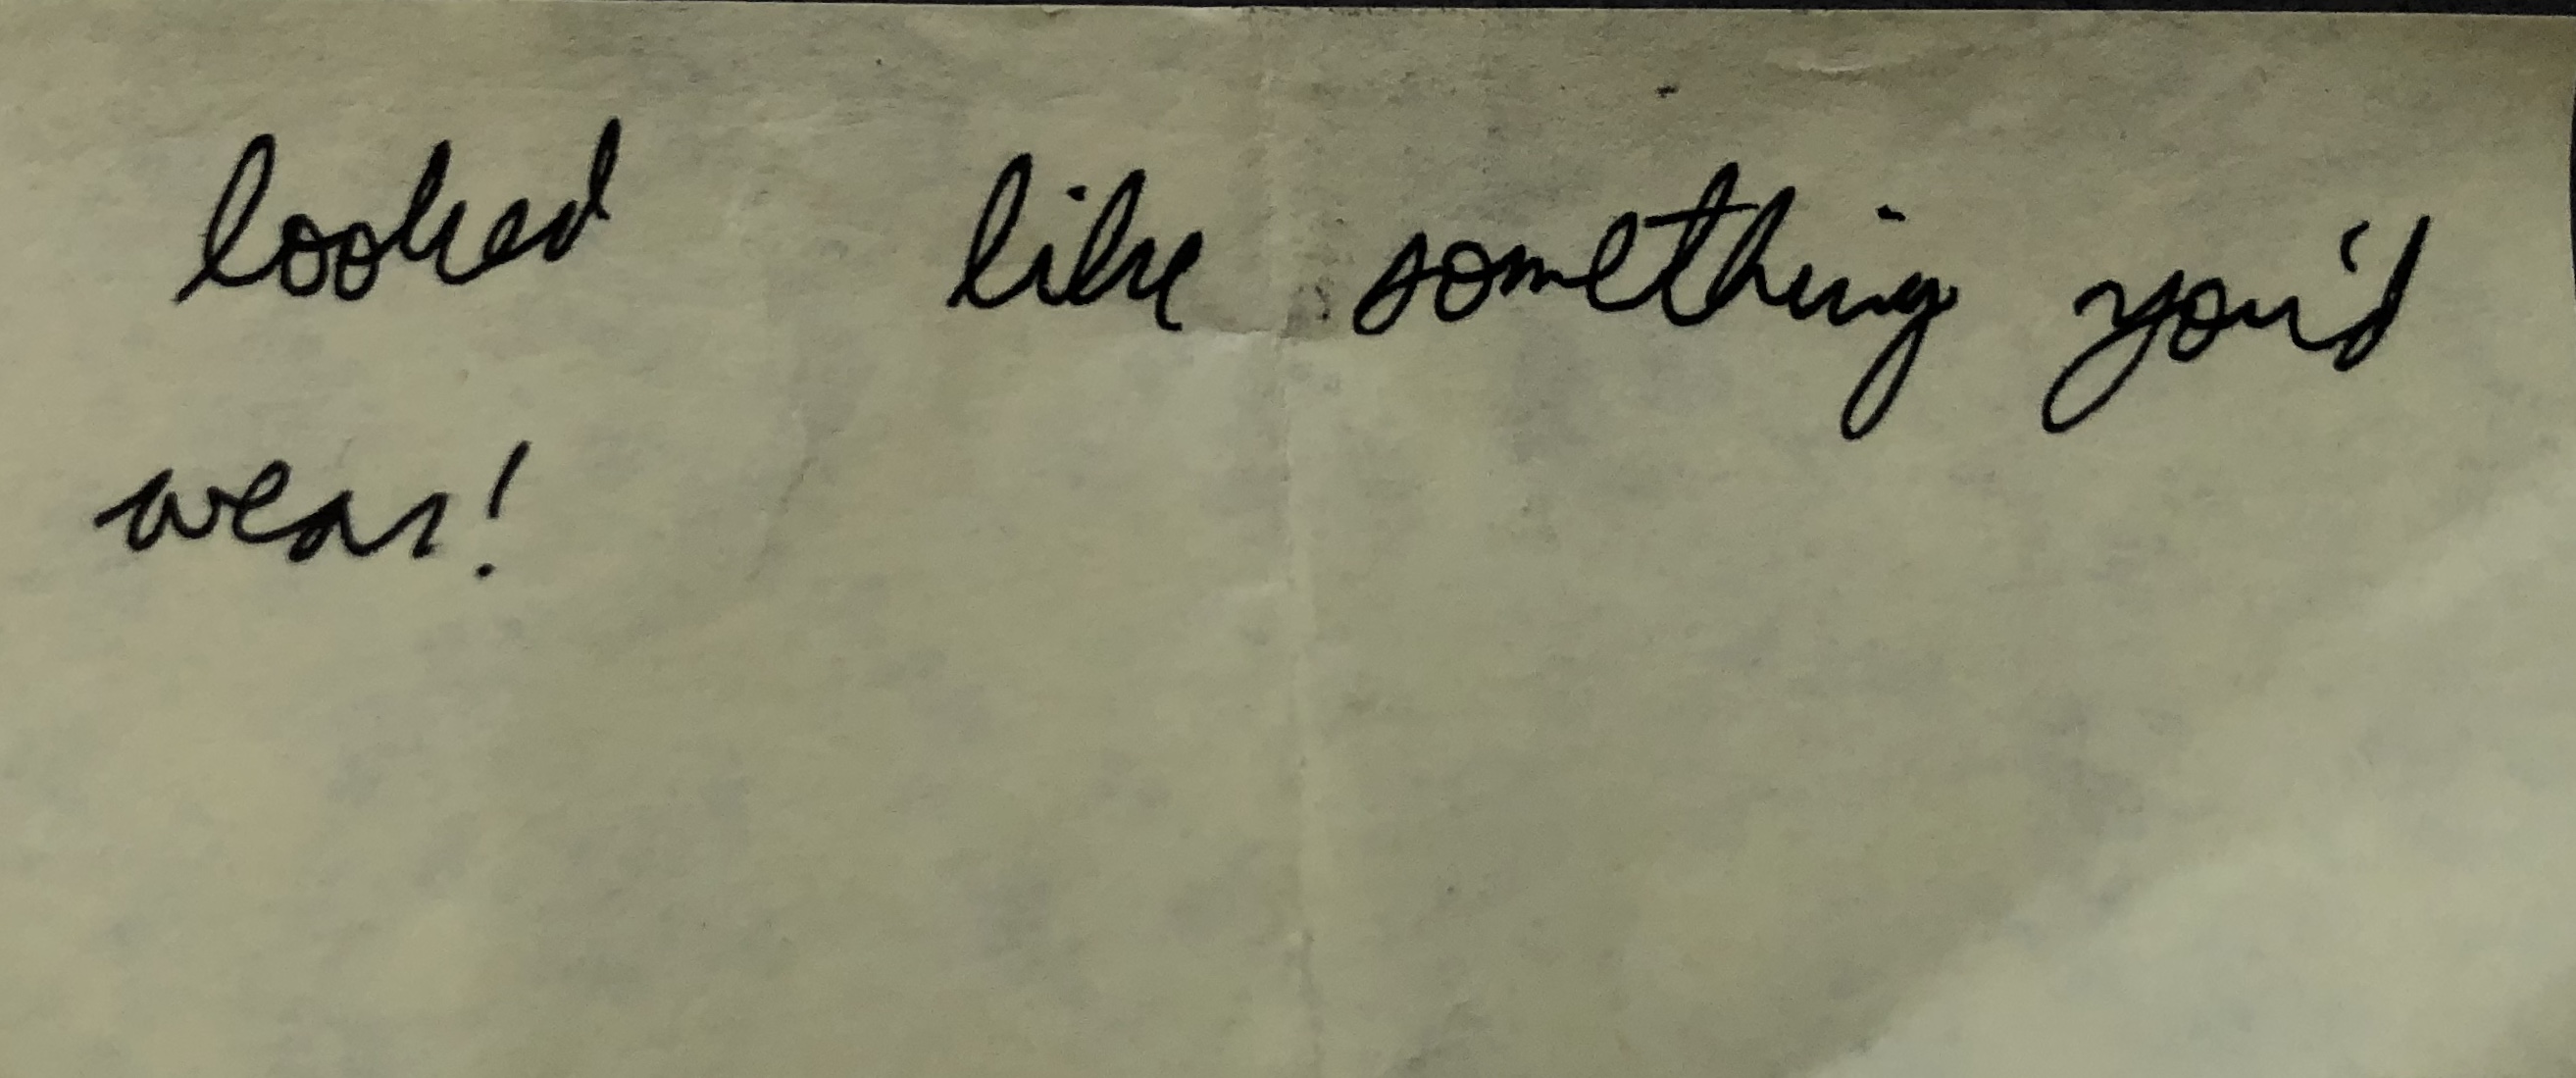 looked like something you'd
wear!